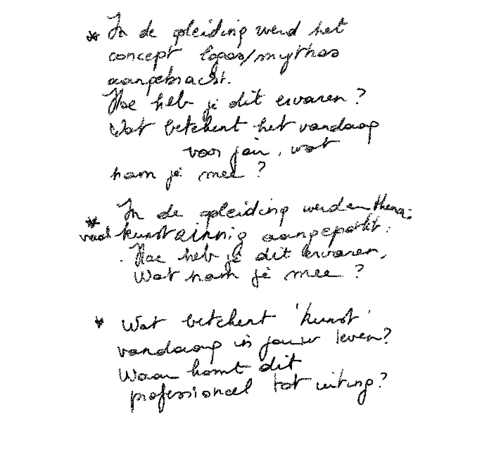 * In de opleiding werd het
concept logos/mythos
aangebracht.
Hoe heb je dit ervaren?
Wat betekent het vandaag
voor jou, wat
nam je mee?
* In de opleiding werden thema's
vaak kunstzinnig aangepakt.
Hoe heb je dit ervaren,
Wat nam je mee?
* Wat betekent 'kunst'
vandaag in jouw leven?
Waar komt dit
professioneel tot uiting?